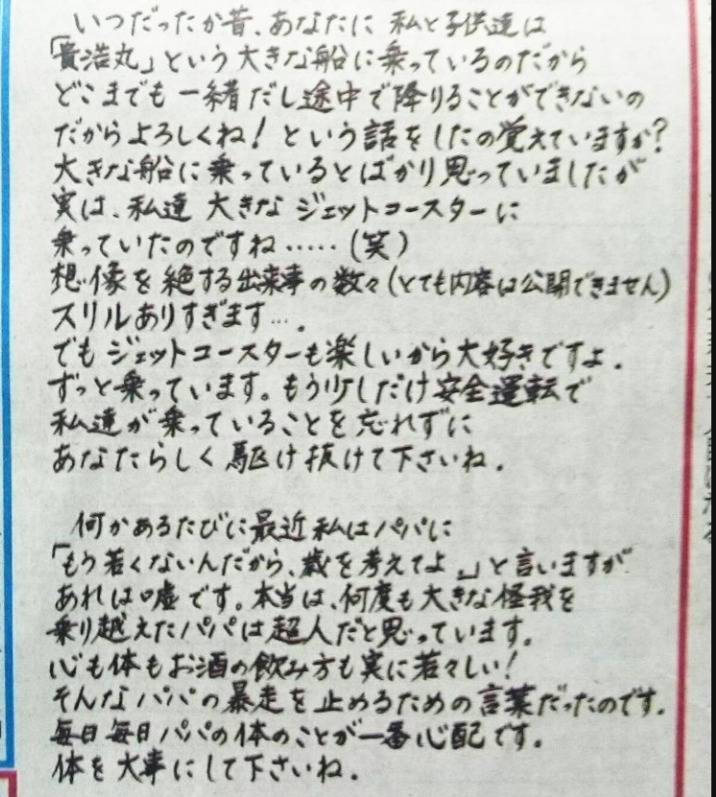 いつだったか昔、あなたに 私と子供達は
「貴浩丸」という大きな船に乗っているのだから
どこまでも一緒だし途中で降りることができないの
だからよろしくね！という話をしたの覚えていますか？
大きな船に乗っているとばかり思っていましたが
実は、私達 大きな ジェットコースターに
乗っていたのですね……（笑）
想像を絶する出来事の数々（とても内容は公開できません）
スリルありすぎます…。
でもジェットコースターも楽しいから大好きですよ。
ずっと乗っています。もう少しだけ安全運転で
私達が乗っていることを忘れずに
あなたらしく駆け抜けて下さいね。
何かあるたびに最近私はパパに
「もう若くないんだから、歳を考えてよ。」と言いますが
あれは嘘です。本当は、何度も大きな怪我を
乗り越えたパパは超人だと思っています。
心も体もお酒の飲み方も実に若々しい！
そんなパパの暴走を止めるための言葉だったのです。
毎日毎日パパの体のことが一番心配です。
体を大事にして下さいね。